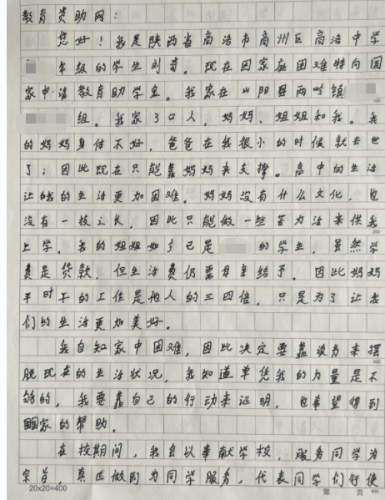 教育资助网：
您好！我是陕西省商洛市商州区商洛中学
年级的学生刘奇。现在因家庭困难特向国
家申请教育助学金。我家在山阳县两岭镇
组。我家了口人，妈妈、姐姐和我。我
的妈妈身体不好，爸爸在我很小的时候就去世
了；因此现在只能靠妈妈来支撑。高中的生活
让我的生活更加困难。妈妈没有什么文化，也
没有一技之长，因此只能做一些苦力活来供我
上学，我的姐姐如了已是的学生，虽然学
费是贷款，但生活费仍需要自主给予。因此妈妈
平时干的工作是他人的三四倍，只是为了让我
们的生活更加美好。
我自知家中困难，因此决定要靠读书来摆
脱现在的生活状况，我知道单凭我的力量是不
够的，我要靠自己的行动来证明，也希望得到
国家的帮助。
在校期间，我自以奉献学校，服务同学为
宗旨，真正做到为同学服务，代表同学们行使
20x20=400 第 页